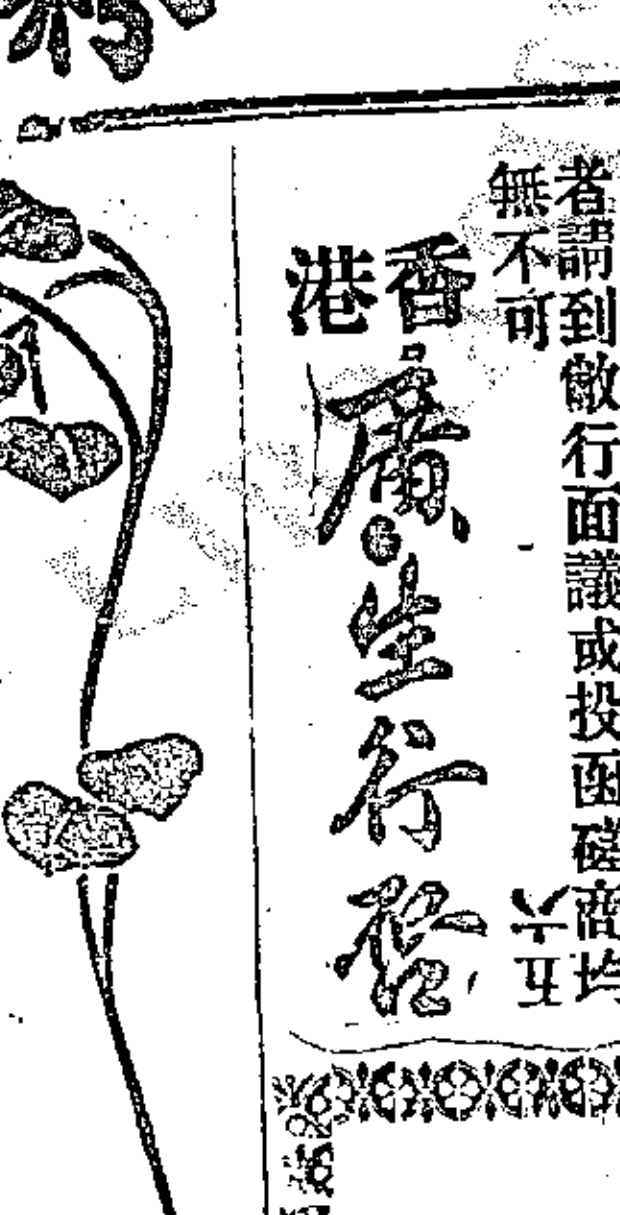 者請到敝行面議或投函磋商均
無不可
香港
廣生行啓